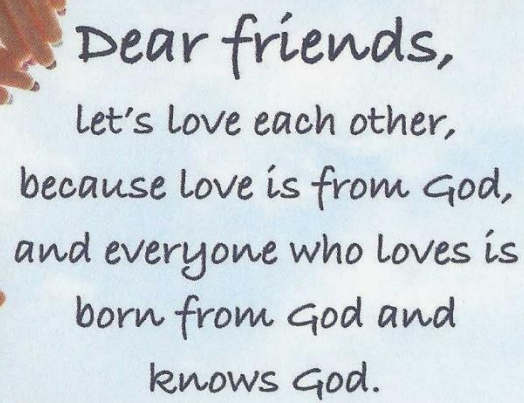 Dear friends,
let's love each other,
because love is from God,
and everyone who loves is
born from God and
knows God.